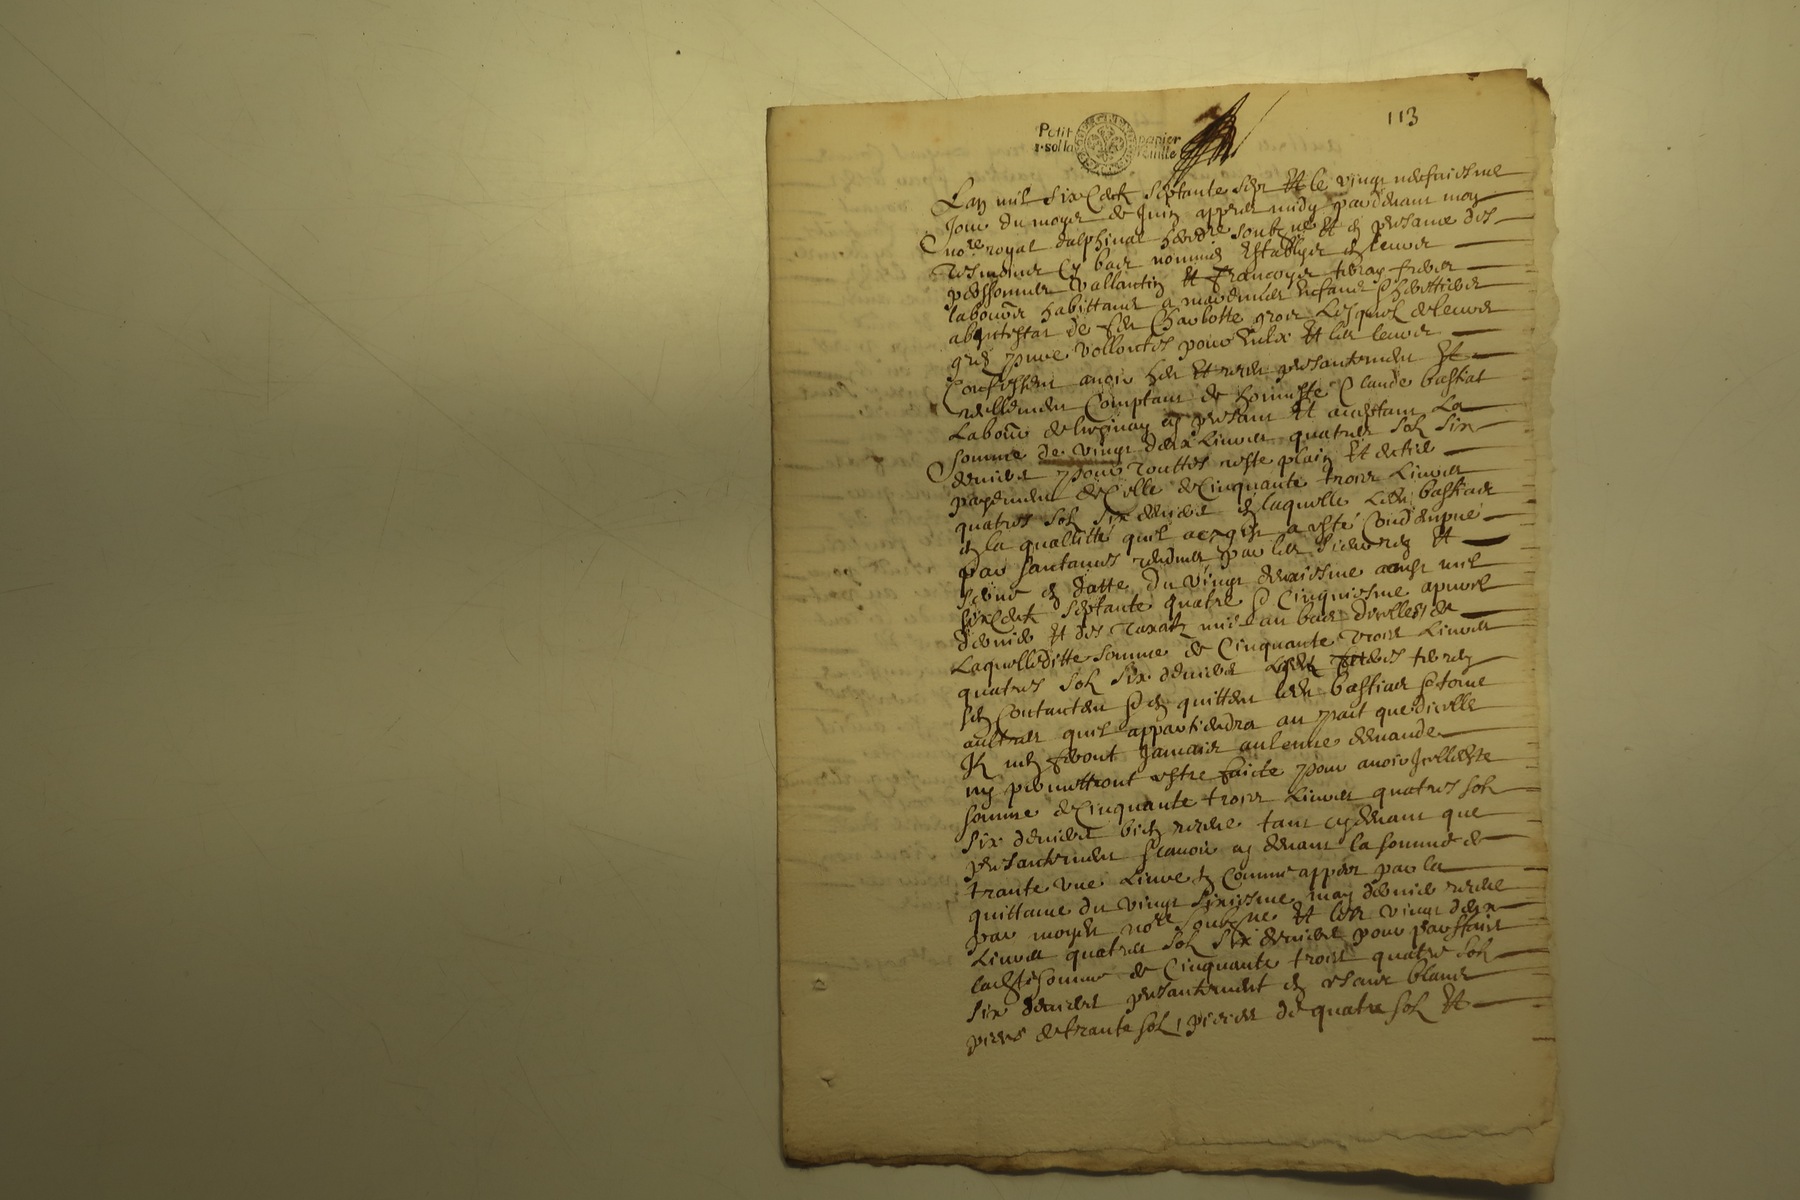 113
Petit papier
sol la feuille
Lan mil six Centz septante sept Et le vingt neufuiesme
Jour du moys de Juin appres midy pardeuant moy
nore royal dalphinal heredre soubzne Et en presance des
tesmoins Cy bas nommés Establyes en leurs
personnes Vallantin Et francoys freres
labours habittans a Enfans & herittiers
abintestat de feu Charlotte gros Lesquels de leurs
grez pure vollontés pour Eulx Et les leurs
Confessent auoir heu Et receu presantement Et
reellement Comptant de honneste Claude bastiat
Labour de presant Et acceptant La
somme de vingt deux Liures quatres solz six
deniers pour touttes reste plain Et entier
payement de Celle de Cinquante trois Liures
quatres solz six deniers En laquelle led bastiat
En la quallitté quil acegist a esté Condempné
par santances rendues par les sieurs Et
en datte du vingt deuxiesme aougst mil
six Centz septante quatre & Cinquiesme apuril
dernier Et des taxatz mis au bas dicelles de
Laquelleditte somme de Cinquante trois Liures
quatres solz six deniers lesdz freres
sen Contantent & en quittent led bastiat & tous
aultres quil appartiendra au pact que dicelle
Ilz nen feront Jamais aulcune demande
ny permettront estre faicte pour auoir Jcelledte
somme de Cinquante trois Liures quatres solz
six deniers bien receue tant cydeuant que
presantement scauoir cy deuant la somme de
trante vne Liure Comme appert par la
quittance du vingt sixiesme may dernier receue
par moydt nore soubzne Et les vingt deux
Liures quatres solz six deniers pour parffaire
ladte somme de Cinquante trois quatre solz
six deniers presantement En escus blancs
pieces de trante solz, pieces de quatre solz Et